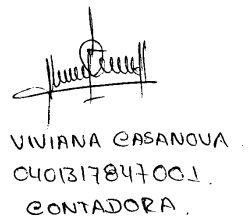 VIVIANA CASANOVA.
0401317847001.
CONTADORA.